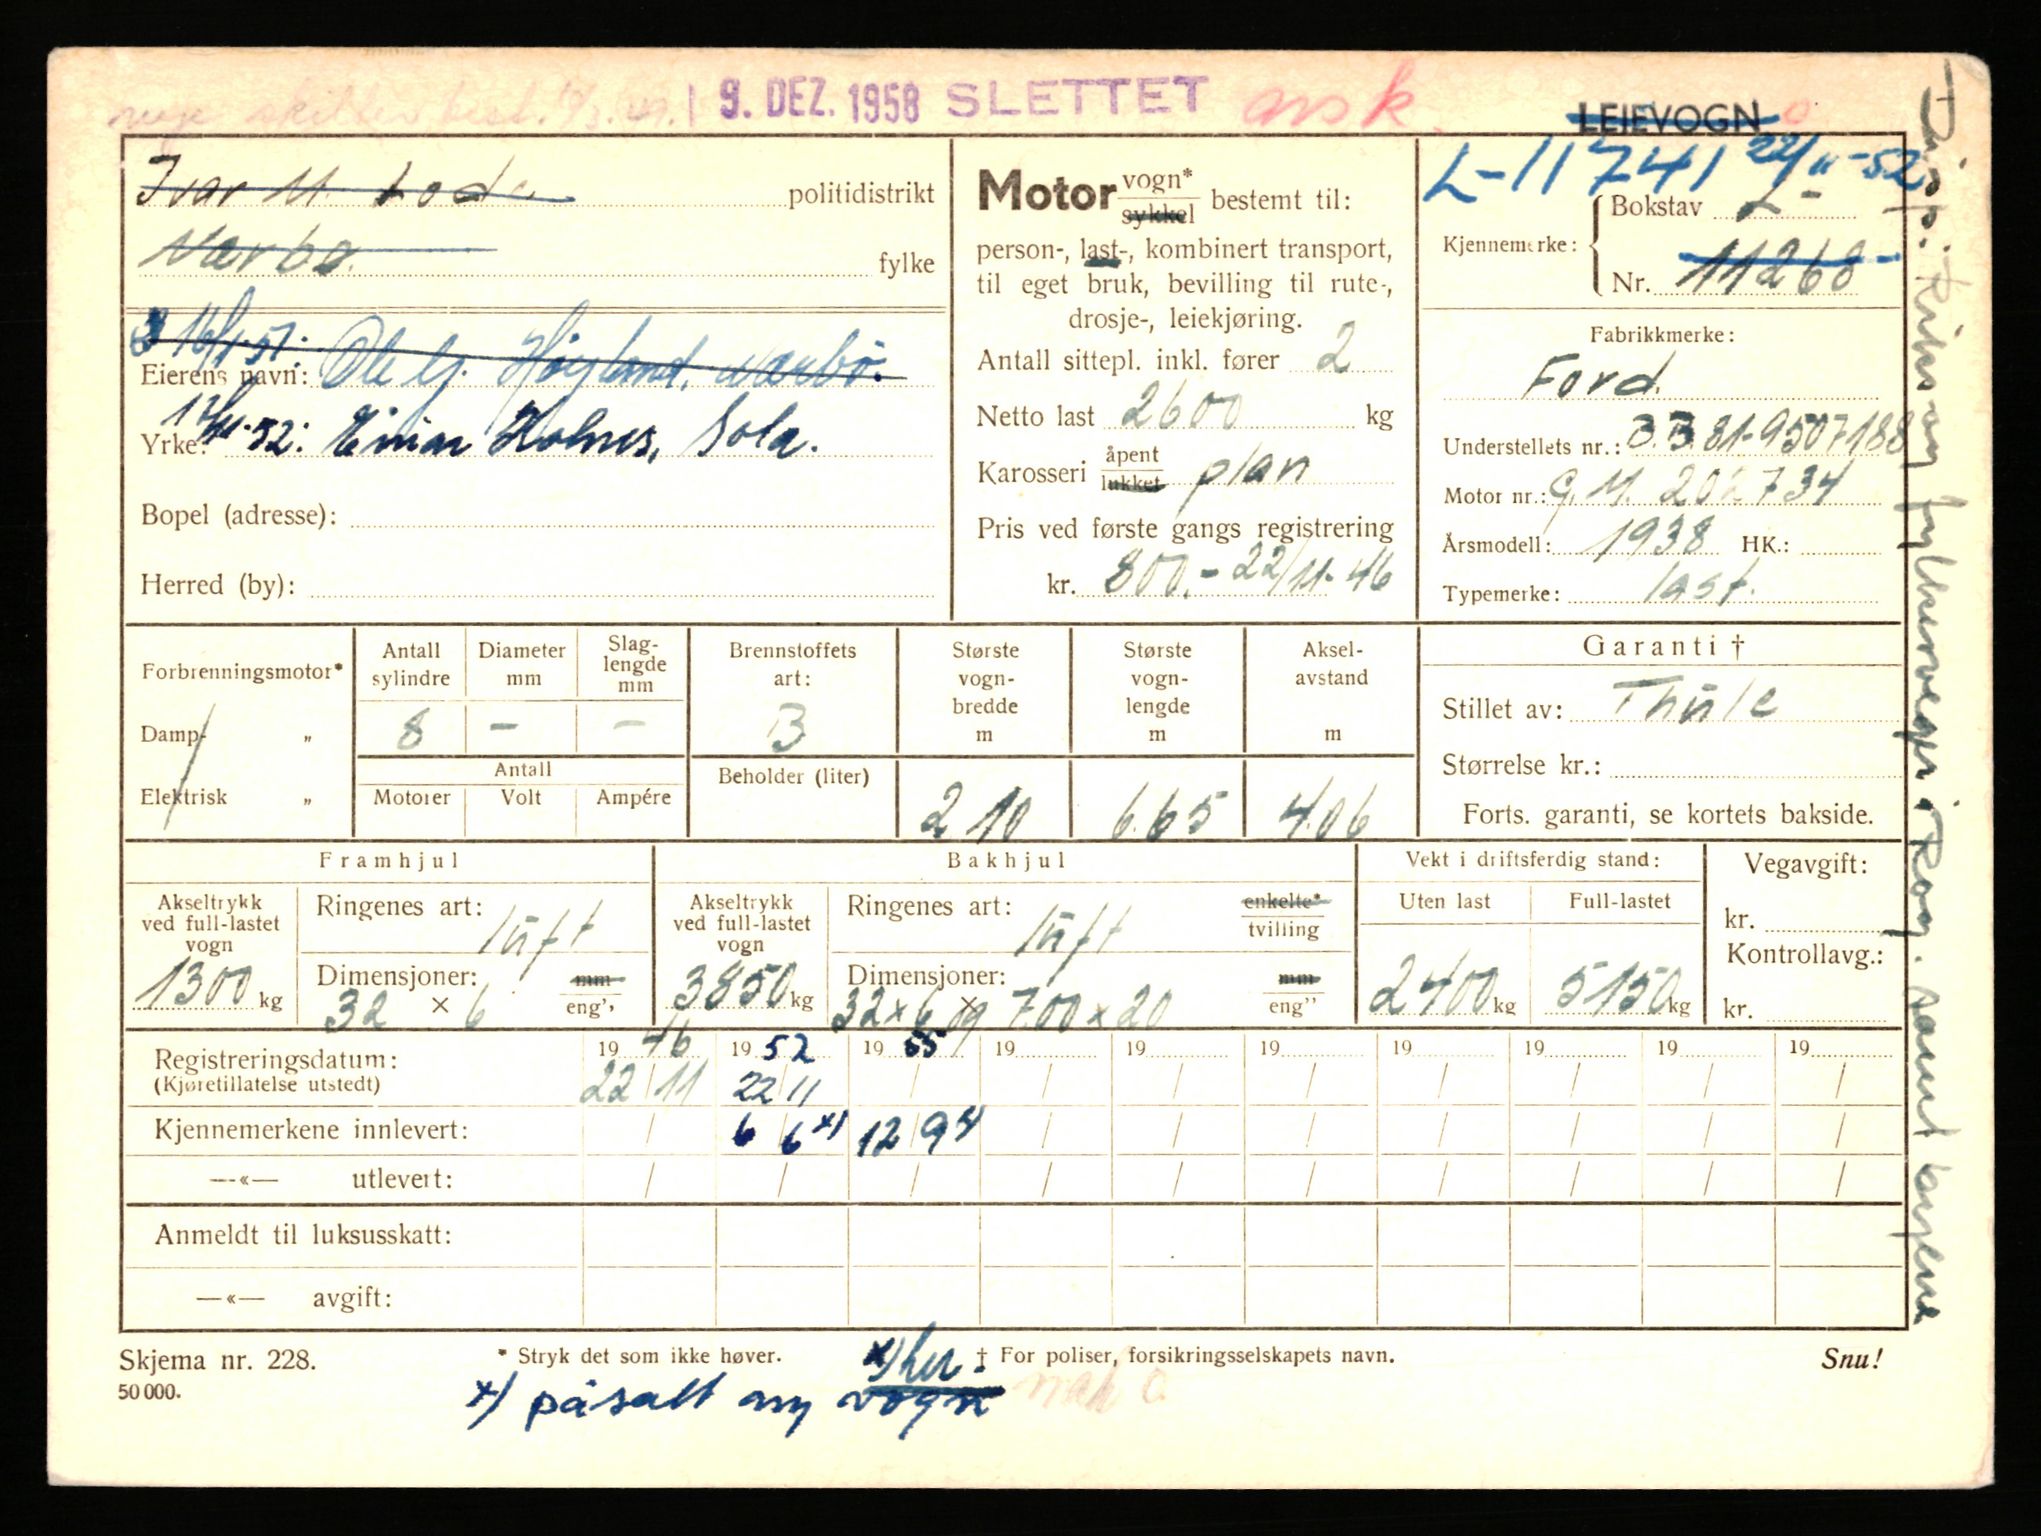 nye skilter best.
9. DEZ. 1958 SLETTET
LEIEVOGN
L-11741 22/11-52
Ivar M. Lode politidistrikt
Nærbø. fylke
16/1-51: Ole G. Høyland, Nærbø.
Eierens navn:
Yrke: 12/11-52: Einar Holnes, Sola.
Bopel (adresse):
Herred (by):
Motor vogn* sykkel bestemt til:
person-, last-, kombinert transport,
til eget bruk, bevilling til rute-,
drosje-, leiekjøring.
Antall sittepl. inkl. fører 2
Netto last 2600 kg
Karosseri åpent lukket plan
Pris ved første gangs registrering
kr. 800.- 22/11-46
Kjennemerke: Bokstav L-
Nr. 11268
Fabrikkmerke:
Ford.
Understellets nr.: B.B.81-9507188
Motor nr.: G.M. 202734
Årsmodell: 1938 HK.:
Typemerke: last.
Forbrenningsmotor*
Damp- „
Elektrisk „
Antall sylindre Diameter mm Slag-lengde mm
8 - -
Antall
Motorer Volt Ampére
Brennstoffets art:
B
Beholder (liter)
Største vogn-bredde m
2 10
Største vogn-lengde m
6.65
Aksel-avstand m
4.06
Garanti †
Stillet av: Thule
Størrelse kr.:
Forts. garanti, se kortets bakside.
Framhjul
Akseltrykk ved full-lastet vogn
1300 kg
Ringenes art: luft
Dimensjoner: mm
32 × 6 eng''
Bakhjul
Akseltrykk ved full-lastet vogn
3850 kg
Ringenes art: luft enkelte* tvilling
Dimensjoner: mm
32×6 og 700×20 eng''
Vekt i driftsferdig stand:
Uten last Full-lastet
2400 kg 5150 kg
Vegavgift:
kr.
Kontrollavg.:
kr.
Registreringsdatum: 19 46 19 52 19 55 19 19 19 19 19 19 19
(Kjøretillatelse utstedt) 22/11 22/11 / / / / / / / /
Kjennemerkene innlevert: / 6/6 x) 12/9 / / / / / / /
—«— utlevert: / / / / / / / / / /
Anmeldt til luksusskatt:
—«— avgift:
Skjema nr. 228.
50 000.
* Stryk det som ikke høver.
x) her.
† For poliser, forsikringsselskapets navn.
Snu!
x) påsatt ny vogn
Disp.: Riks og fylkesveger i Rog. samt byene